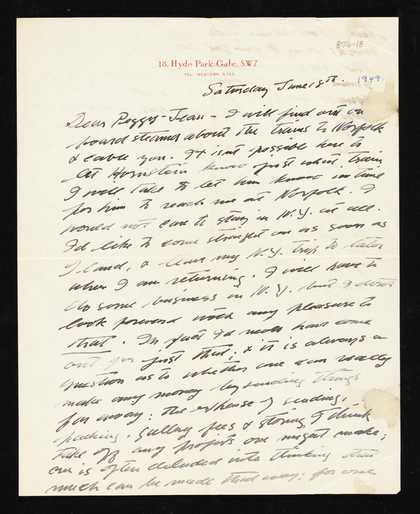 876-18
18, Hyde Park Gate, S.W.7
TEL. WESTERN
Saturday June 18th.
1949
Dear Peggy-Jean - I will find out on
board steamer about the trains to Norfolk
& cable you. It isn't possible here to
let Hornstein know just what train
I will take to let him know in time
for him to reach me at Norfolk. I
would not care to stay in N.Y. at all.
I'd like to come straight on as soon as
I land, & leave my N.Y. trip to later
when I am returning. I will have to
do some business in N.Y. but I don't
look forward with any pleasure to
that. In fact I'd never have come
out for just that; & it is always a
question as to whether one can really
make any money by sending things
far away: the expense of sending,
packing, gallery fees & storing I think
take off any profits one might make;
one is often deluded into thinking that
much can be made that way: for one